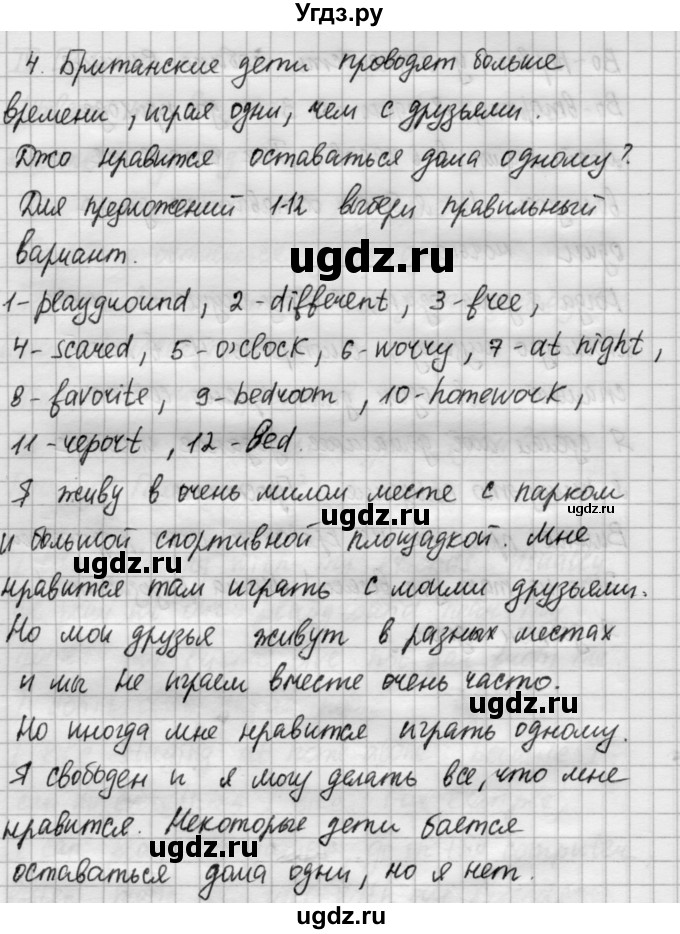 Угдз.ру
4. Британские дети проводят больше
времени, играя одни, чем с друзьями.
Джо нравится оставаться дома одному?
Для предложений 1-12 выбери правильный
вариант.
ugdz.ru
1-playground, 2-different, 3-free,
4-scared, 5-o'clock, 6-worry, 7-at night,
8-favorite, 9-bedroom, 10-homework,
11-report, 12-Bed.
ugdz.ru
Я живу в очень милом месте с парком
ugdz.ru
ugdz.ru
и большой спортивной площадкой. Мне
ugdz.ru
нравится там играть с моими друзьями.
Но мои друзья живут в разных местах
и мы не играем вместе очень часто.
ugdz.ru
Но иногда мне нравится играть одному.
Я свободен и я могу делать все, что мне
нравится. Некоторые дети бается
ugdz.ru
оставаться дома одни, но я нет.
ugdz.ru